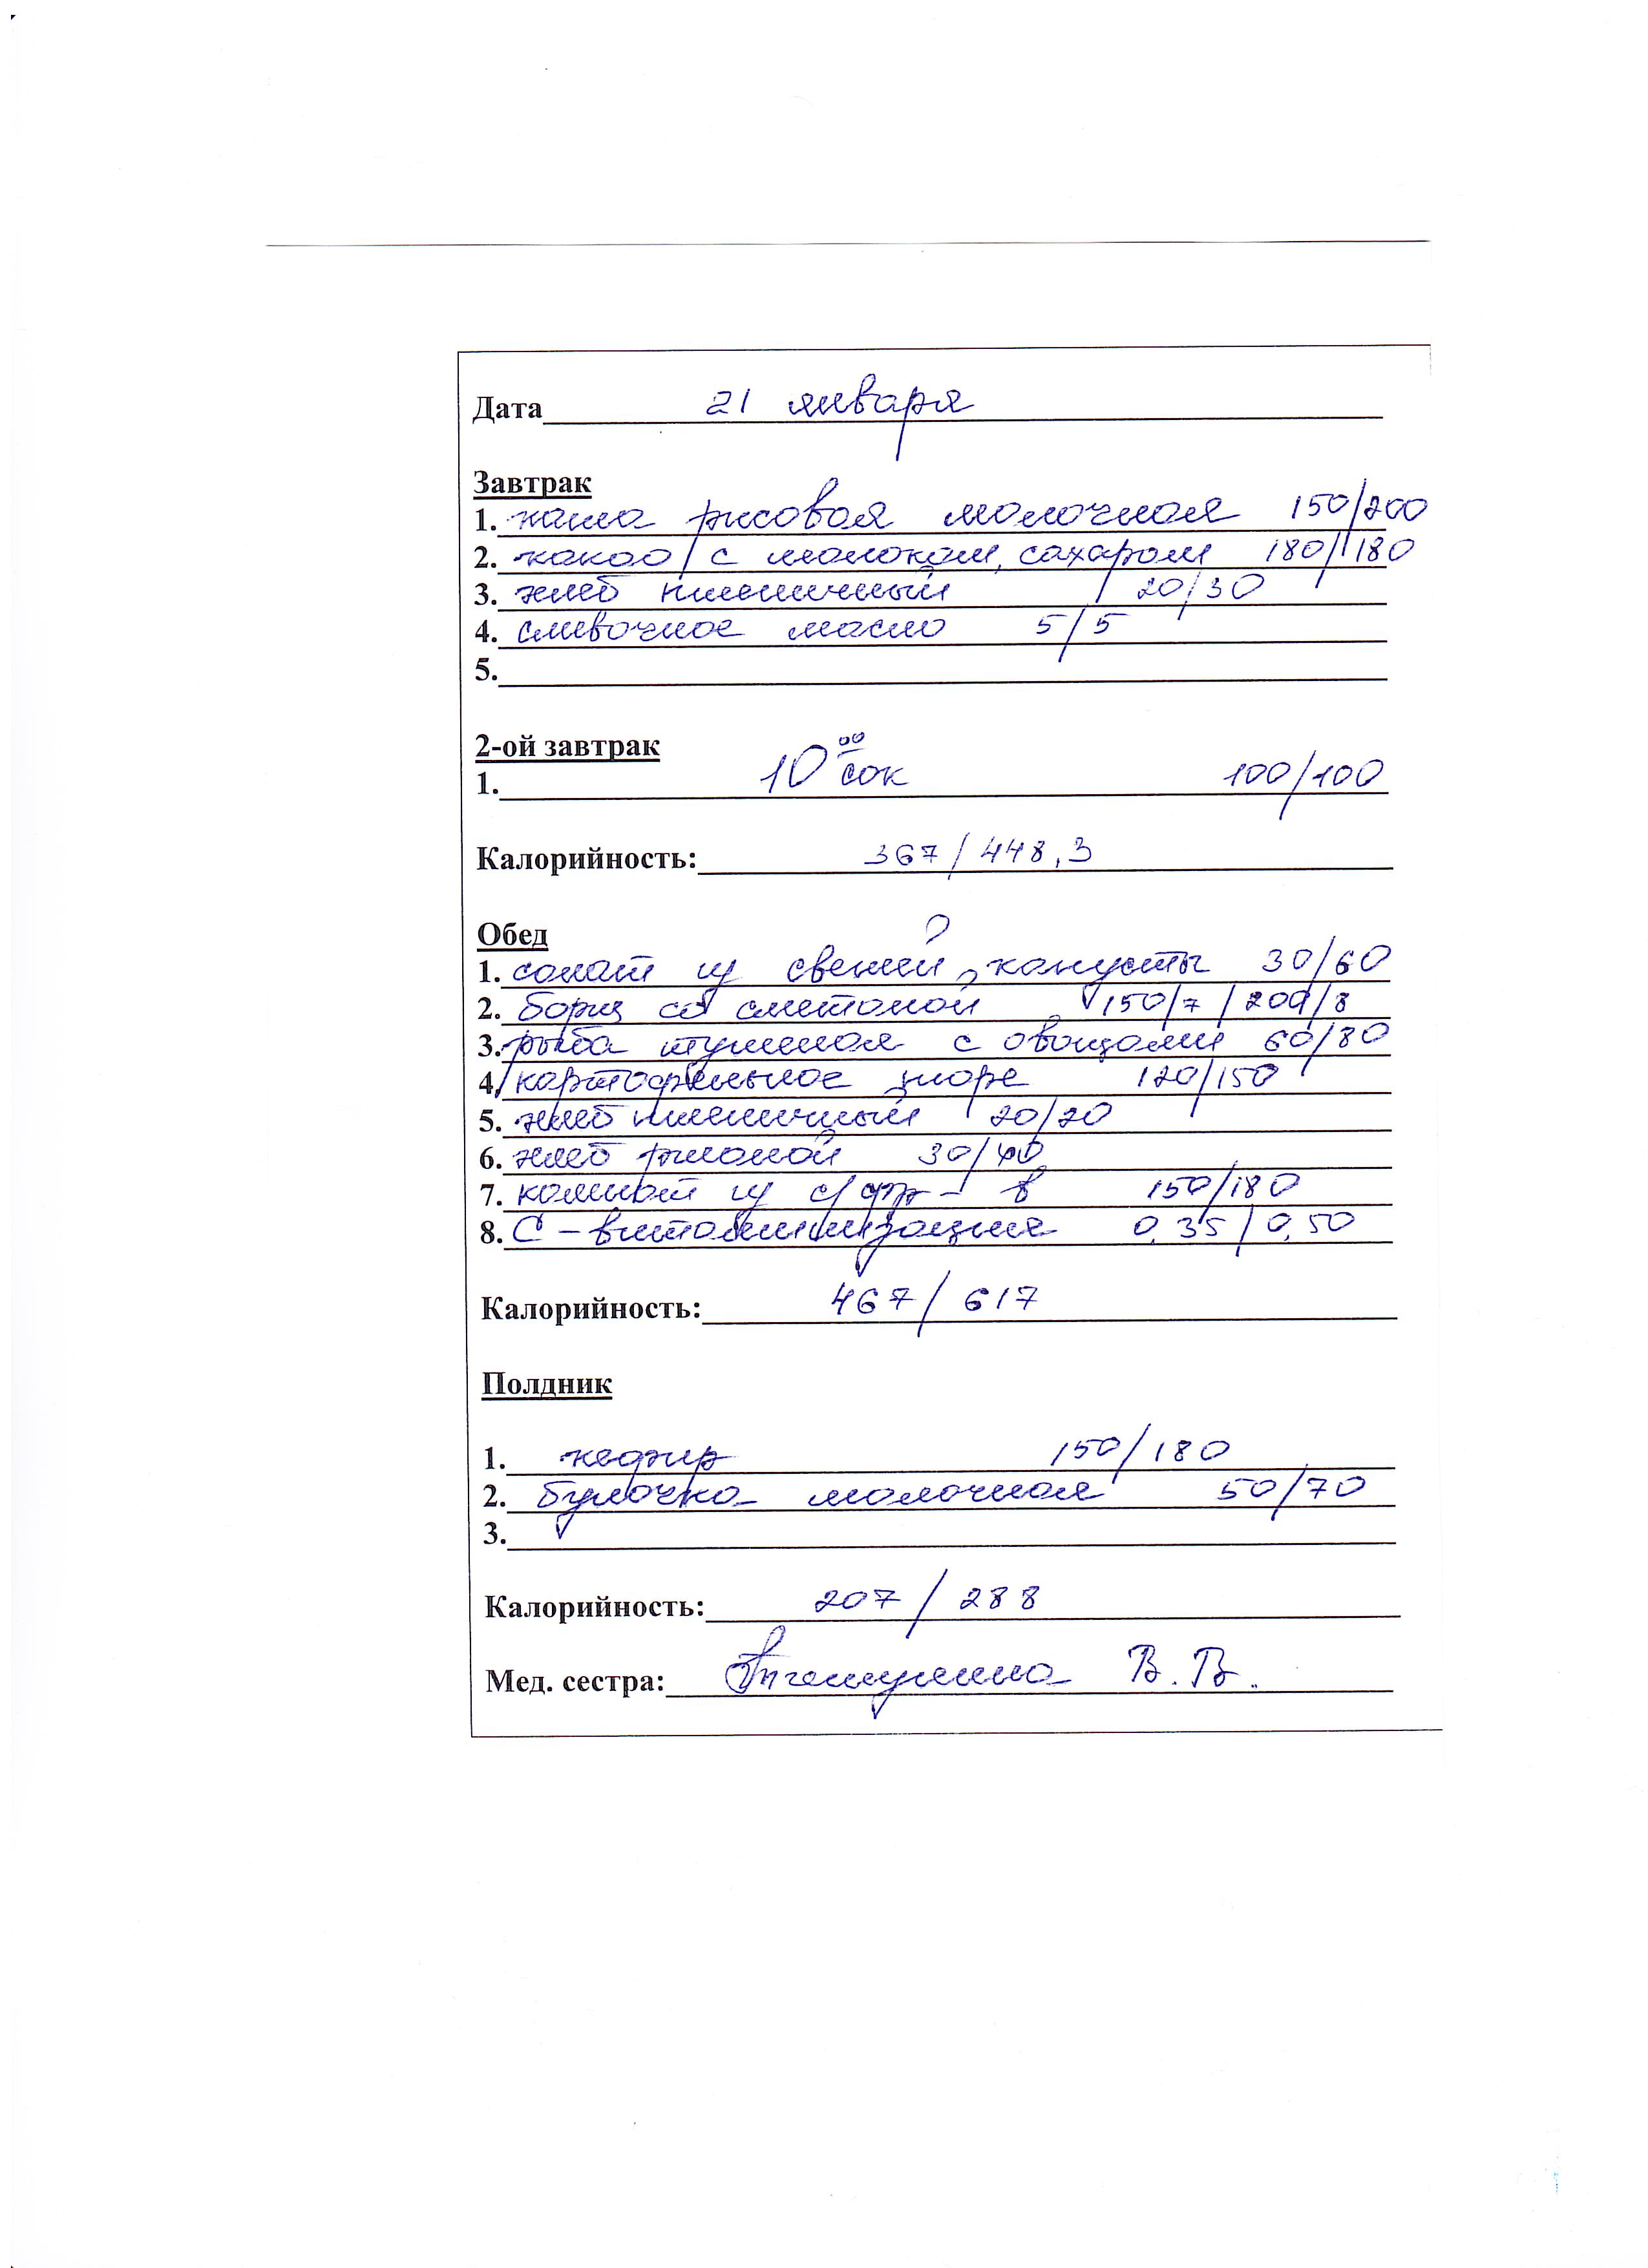 Дата 21 января
Завтрак
1. каша рисовая молочная 150/200
2. какао с молоком, сахаром 180/180
3. хлеб пшеничный 20/30
4. сливочное масло 5/5
5.
2-ой завтрак
1. 10 00 сок 100/100
Калорийность: 367/448,3
Обед
1. салат из свежей капусты 30/60
2. борщ со сметаной 150/7/200/8
3. рыба тушеная с овощами 60/80
4. картофельное пюре 120/150
5. хлеб пшеничный 20/20
6. хлеб ржаной 30/40
7. компот из с/фр-в 150/180
8. С-витаминизация 0,35/0,50
Калорийность: 467/617
Полдник
1. кефир 150/180
2. булочка молочная 50/70
3.
Калорийность: 207/288
Мед. сестра: В.В.